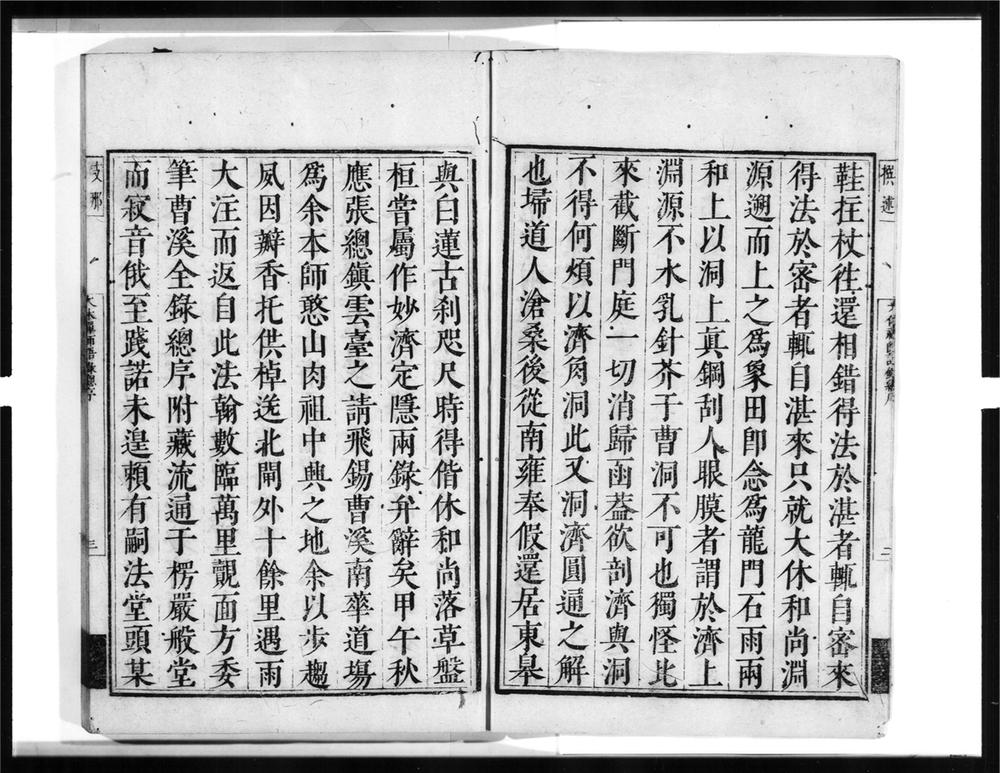 撰述
鞋拄杖徃還相錯得法於湛者輒自密來
得法於密者輒自湛來只就大休和尚淵
源遡而上之爲象田卽念爲龍門石雨兩
和上以洞上眞鋼刮人眼膜者謂於濟上
淵源不水乳針芥于曹洞不可也獨怪比
來截斷門庭一切消歸函蓋欲剖濟與洞
不得何煩以濟角洞此又洞濟圓通之解
也埽道人滄桑後從南雍奉假還居東皋
與白蓮古刹咫尺時得偕休和尚落草盤
桓嘗屬作妙濟定隱兩錄弁辭矣甲午秋
應張總鎭雲臺之請飛錫曹溪南華道塲
爲余本師憨山肉祖中興之地余以歩趨
夙因瓣香托供棹送北閘外十餘里遇雨
大注而返自此法翰數臨萬里覿面方委
筆曹溪全錄總序附藏流通于楞嚴般堂
而寂音俄至踐諾未遑賴有嗣法堂頭某
支那
三